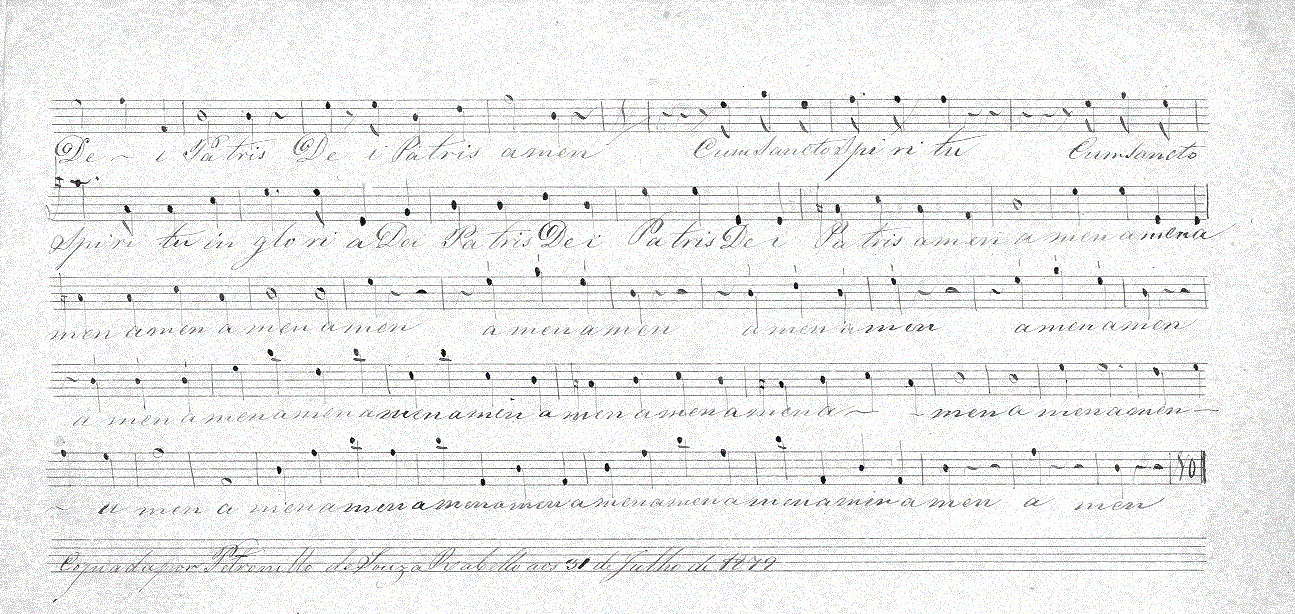 De - i Patris De i Patris amen Cum Sancto Spi ri tu Cum Sancto
Spi ri tu in glo ri a Dei Patris De i Patris De i Patris amen a men a men a
men amen a men amen a men a men a men a men amen amen
a men amen amen amen amen a men amen amen a - - men a men amen -
- a men a men amen amen amen amen amen amen amen amen a men
Copiada por Petronillo de Souza Rabello aos 31 de Julho de 1879